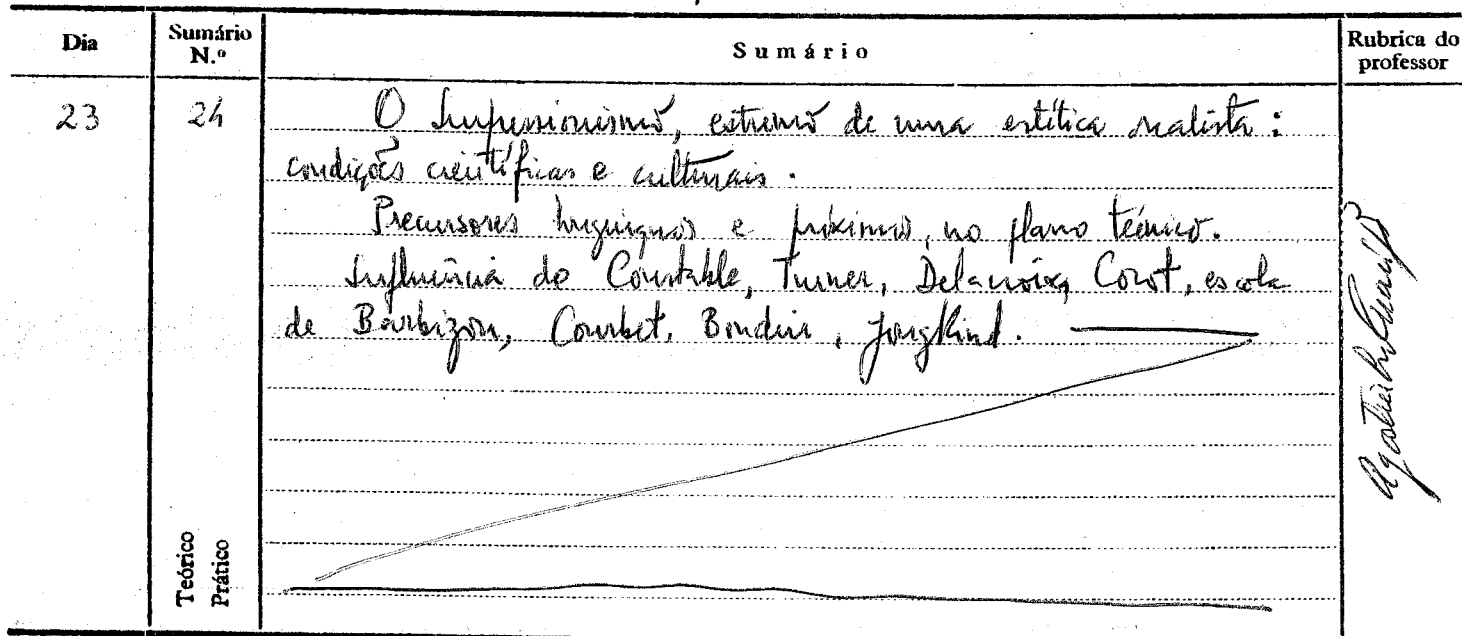 Dia
Sumário N.º
Sumário
Rubrica do professor
23
24
O Impressionismo, extremo de uma estética realista:
condições científicas e culturais.
Precursores longínquos e próximos, no plano técnico.
Influência de Constable, Turner, Delacroix, Corot, escola
de Barbizon, Courbet, Boudin, Jongkind.
Teórico
Prático